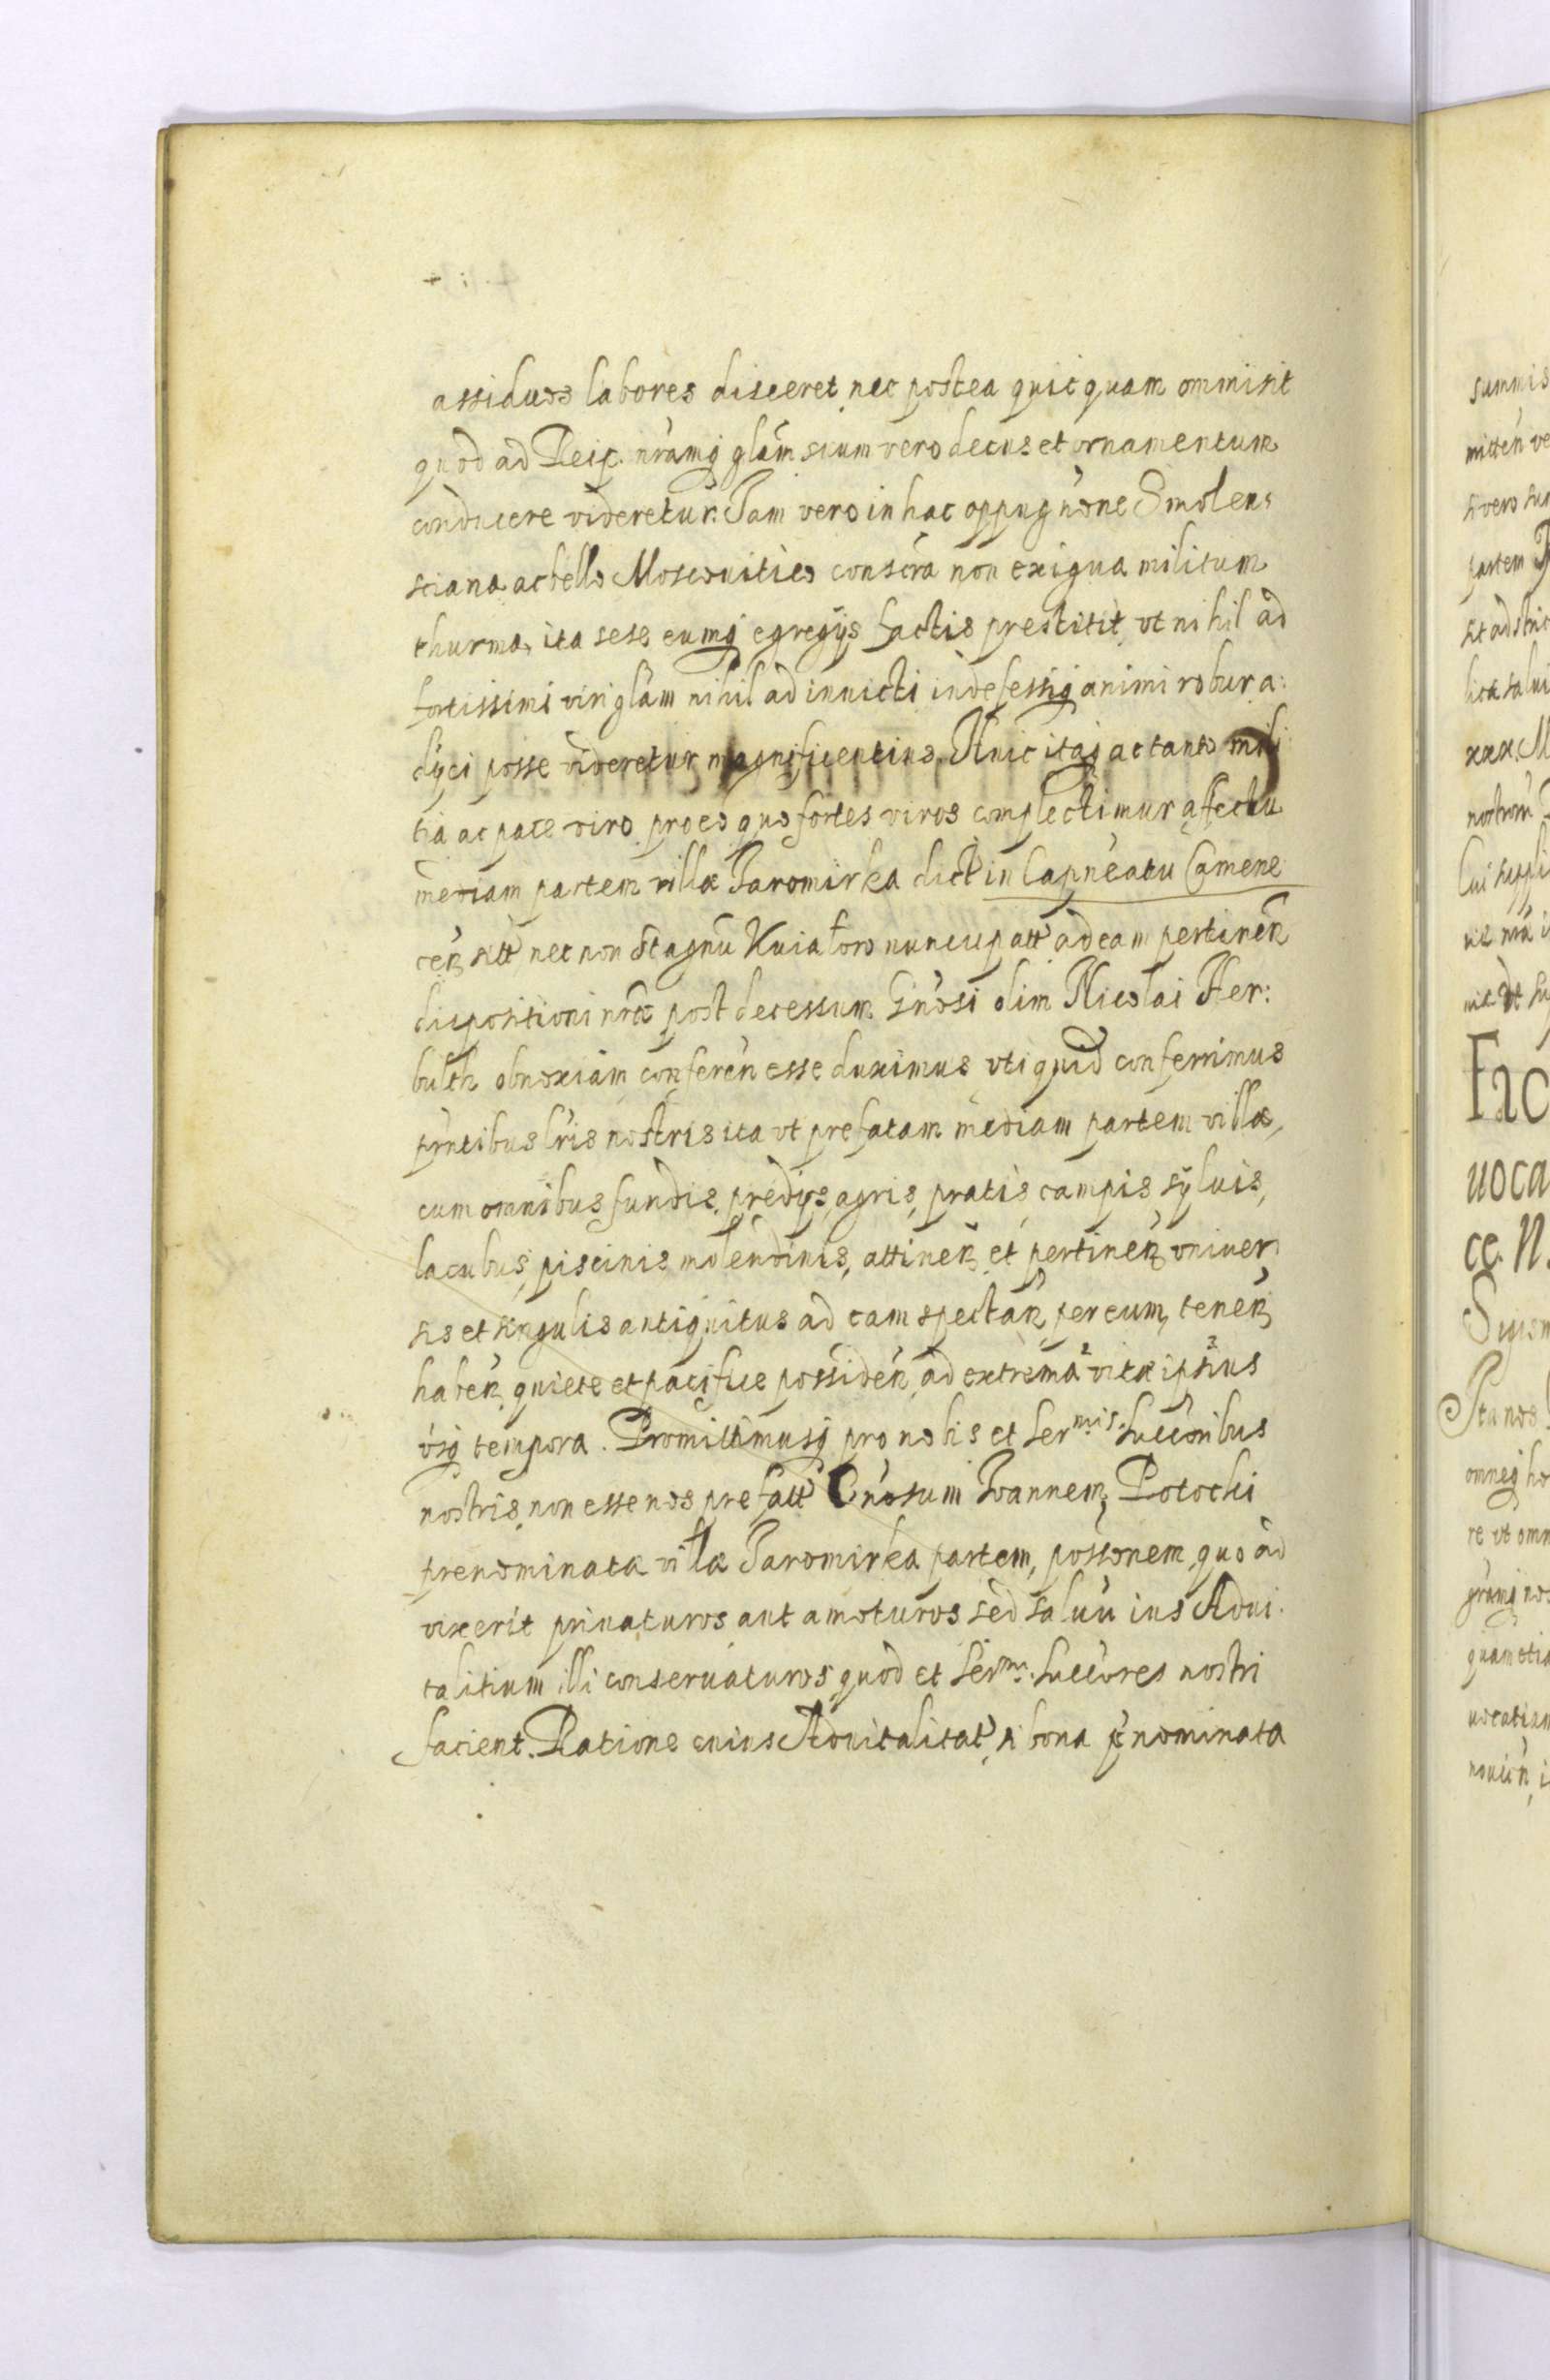 assiduos labores disceret, nec postea quicquam ommisit
quod ad Reip. nramq glam suum vero decus et ornamentum
conducere videretur. Jam vero in hac oppugnone Smolen:
sciana ac bello Moscouitico conscra non exigua militum
thurma, ita sese eumq egregijs factis prestitit, vt nihil ad
fortissimi viri glam nihil ad inuicti indefessiq animi robur a:
dijci posse videretur magnificentius. Huic itaq ac tanto mili
tia ac pace viro pro eo quo fortes viros complectimur affectu
mediam partem villæ Jaromirka dict in Capneatu Camene
cen sitt nec non Stagnu Kuiatoro nuncupatt ad eam pertinen
dispositioni nræ post decessum Gnosi olim Nicolai Her:
bulth obnoxiam conferen esse duximus vti quid conferrimus
pntibus lris nostris ita vt prefatam mediam partem villæ,
cum omnibus fundis, predijs, agris, pratis, campis, syluis,
lacubus, piscinis, molendinis, attinen, et pertinen, vniuer
sis et singulis antiquitus ad eam spectan, per eum, tenen,
haben, quiete et pacifice possiden, ad extrema vitæ ipsius
vsq tempora. Promittimusq pro nobis et Sermis Succoribus
nostris, non esse nos prefatt Gnosum Joannem, Potocki
prenominatæ villæ Jaromirka partem, possonem, quo ad
vixerit priuaturos aut amoturos sed saluu ius Adui.
talitium illi conseruaturos, quod et Sermi. Succores nostri
facient. Ratione cuius Aduitalitat, si bona prnominata
summis
mitten ve
partem
xxx. M
Fac
uoca
ce. N.